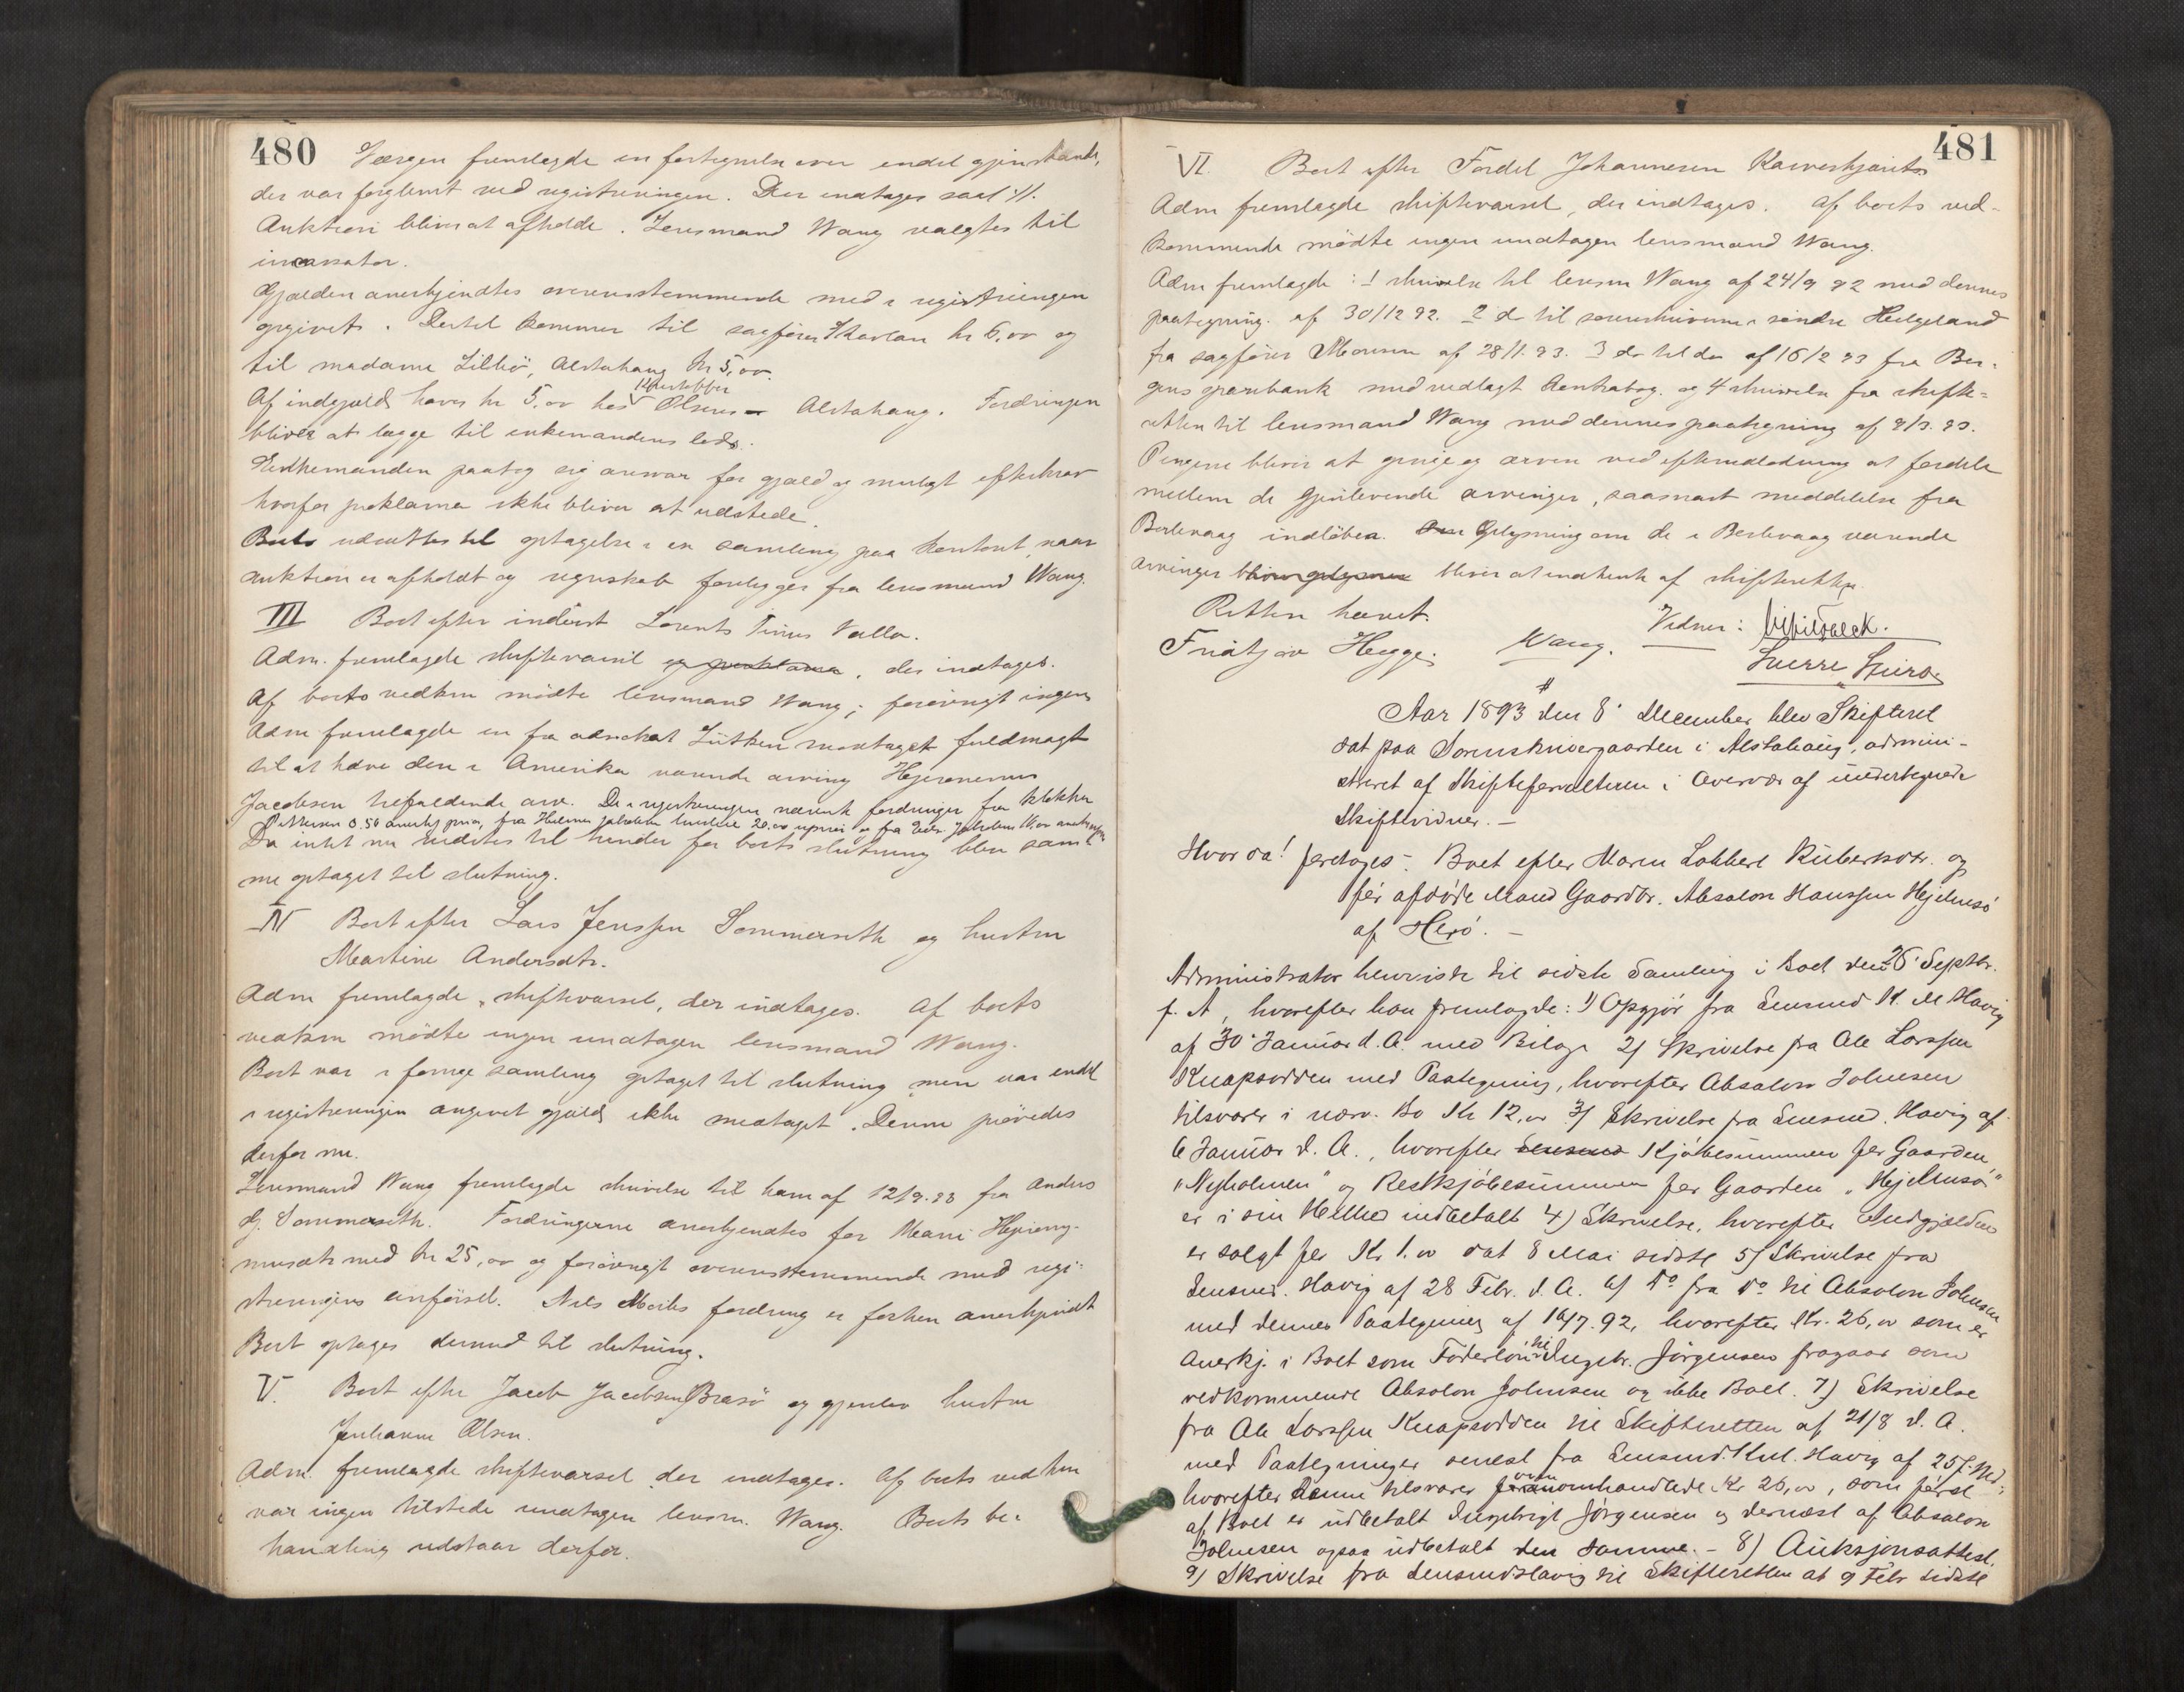 480
Værgen fremlagde en fortegnelse over endel gjenstande,
der var forglemt ved registreringen. Der indtages saal. 11.
Auktion bliver at afholde. Lensmand Wang valgtes til
incassator.
Gjælden anerkjendtes overensstemmende med i registreringen
opgivet. Dertil kommer til sagfører Skavlan kr 6,00 og
til madame Lilleö, Alstahaug kr 5,00.
Af indgjæld haves kr 5,00 hos Olsens Alstahaug. Fordringen
bliver at lægge til enkemandens lod.
Enkemanden paatog sig ansvar for gjæld og muligt efterkrav
hvorfor proklama ikke bliver at udstede.
Boets udsættes til optagelse i en samling paa kontoret, naar
auktion er afholdt og regnskab foreligger fra lensmand Wang.
III Boet efter inderst Lorents Tinus Valla.
Adm. fremlagde skiftevarsel og proklama, der indtages.
Af boets vedkm mödte lensmand Wang; forövrigt ingen
Adm fremlagde en fra advokat Lütken modtaget fuldmagt
til at hæve den i Amerika værende arving Hejeronimus
Jacobsen tilfaldende arv. De i registreringen nævnte fordringer fra klokker
Pettersen 0.50 anerkj
Da intet nu vidstes til hinder for boets slutning blev samme
optaget til slutning.
IV Boet efter Lars Jenssen Sommerseth og hustru
Martine Andersdtr.
Adm fremlagde skiftevarsel, der indtages. Af boets
vedkm mödte ingen undtagen lensmand Wang.
Boet var i forrige samling optaget til slutning men var endel
i registreringen angivet gjæld ikke medtaget. Denne prövedes
derfor nu.
Lensmand Wang fremlagde skrivelse til ham af 12/9.93 fra Anders
G. Sommerseth. Fordringerne anerkjendtes for Marie Hejerony-
musdtr med kr 25,00 og forövrigt overensstemmende med regi-
streringens anförsel. Nils Moributs fordring er forhen anerkjendt
Boet optages dermed til slutning.
V. Boet efter Jacob Jacobsen Brasö og gjenlev hustru
Johanna Olsen.
Adm. fremlagde skiftevarsel der indtages. Af boets vedkm
var ingen tilstede undtagen lensm. Wang. Boets be-
handling udstaar derfor.
481
VI. Boet efter Fordel Johannesen
Adm fremlagde skiftevarsel, der indtages. Af boets ved-
kommende mödte ingen undtagen lensmand Wang.
Adm fremlagde: 1 skrivelse til lensm Wang af 24/9 92 med dennes
paategning af 30/12 92. 2 do til sorenskriveren i söndre Helgeland
fra sagförer Mounn af 28/1.93. 3 do til do af 16/2 93 fra Ber-
gens sparebank med vedlagt kontrabog. og 4 skrivelse fra skifte-
retten til lensmand Wang med dennes paategning af 8/3.93.
Pengene bliver at grnige og arven ved efterudlodning at fordele
mellem de gjenlevende arvinger, saasnart meddelelse fra
Berlevaag indlöber. Oplysning om de i Berlevaag værende
arvinger bliver at indhente af skifteretten.
Retten hævet.
Fridtjov Hegge. Wang. Vidner:
Sverre
Aar 1893 den 8 December blev Skifteret
sat paa Sorenskrivergaarden i Alstahaug, admini-
streret af Skifteforvalteren i Overvær af undertegnede
Skiftevidner. –
Hvor da! foretoges: Boet efter Maren Lobbert Rubertsdtr. og
för afdöde Mand Gaardbr. Absalon Hanssen Hjelmsö
af Herö. –
Administrator henviste til sidste Samling i Boet den 26 Septbr.
f. A, hvorefter han fremlagde: 1) Opgjör fra Lensmd K. M Havig
af 30 Januar d. A. med Bilage 2) Skrivelse fra Ole Larssen
Knapsodden med Paategning, hvorefter Absalon Johnsen
tilsvarer i nærv. Bo Kr 12,00 3) Skrivelse fra Lensmd. Havig af
6 Januar d. A., hvorefter Kjöbesummen for Gaarden
"Nyholmen" og Restkjöbesummen for Gaarden "Hjelmsö"
er i sin Helhed indbetalt 4) Skrivelse, hvorefter Indgjælden
er solgt for Kr 1.00 dat 8 Mai sidste 5) Skrivelse fra
Lensmd. Havig af 28 Febr. d. A. 6) Do fra Do til Absalon Johnsen
med dennes Paategning af 16/7.92, hvorefter Kr. 26,00 som er
Anerkj. i Boet som Föderlön til Ingebr. Jörgensen fragaar som
vedkommende Absalon Johnsen og ikke Boet. 7) Skrivelse
fra Ole Larssen Knapsodden til Skifteretten af 21/8 d. A.
med Paategninger senest fra Lensmd. Knl. Havig af 25 f. Md.
hvorefter denne tilsvarer ovenomhandlede Kr 26,00, som först
af Boet er udbetalt Ingebrigt Jörgensen og dernæst af Absalon
Johnsen ogsaa udbetalt den samme. – 8) Auksjonsattest.
9) Skrivelse fra Lensmd Havig til Skifteretten af 9 Febr sidste